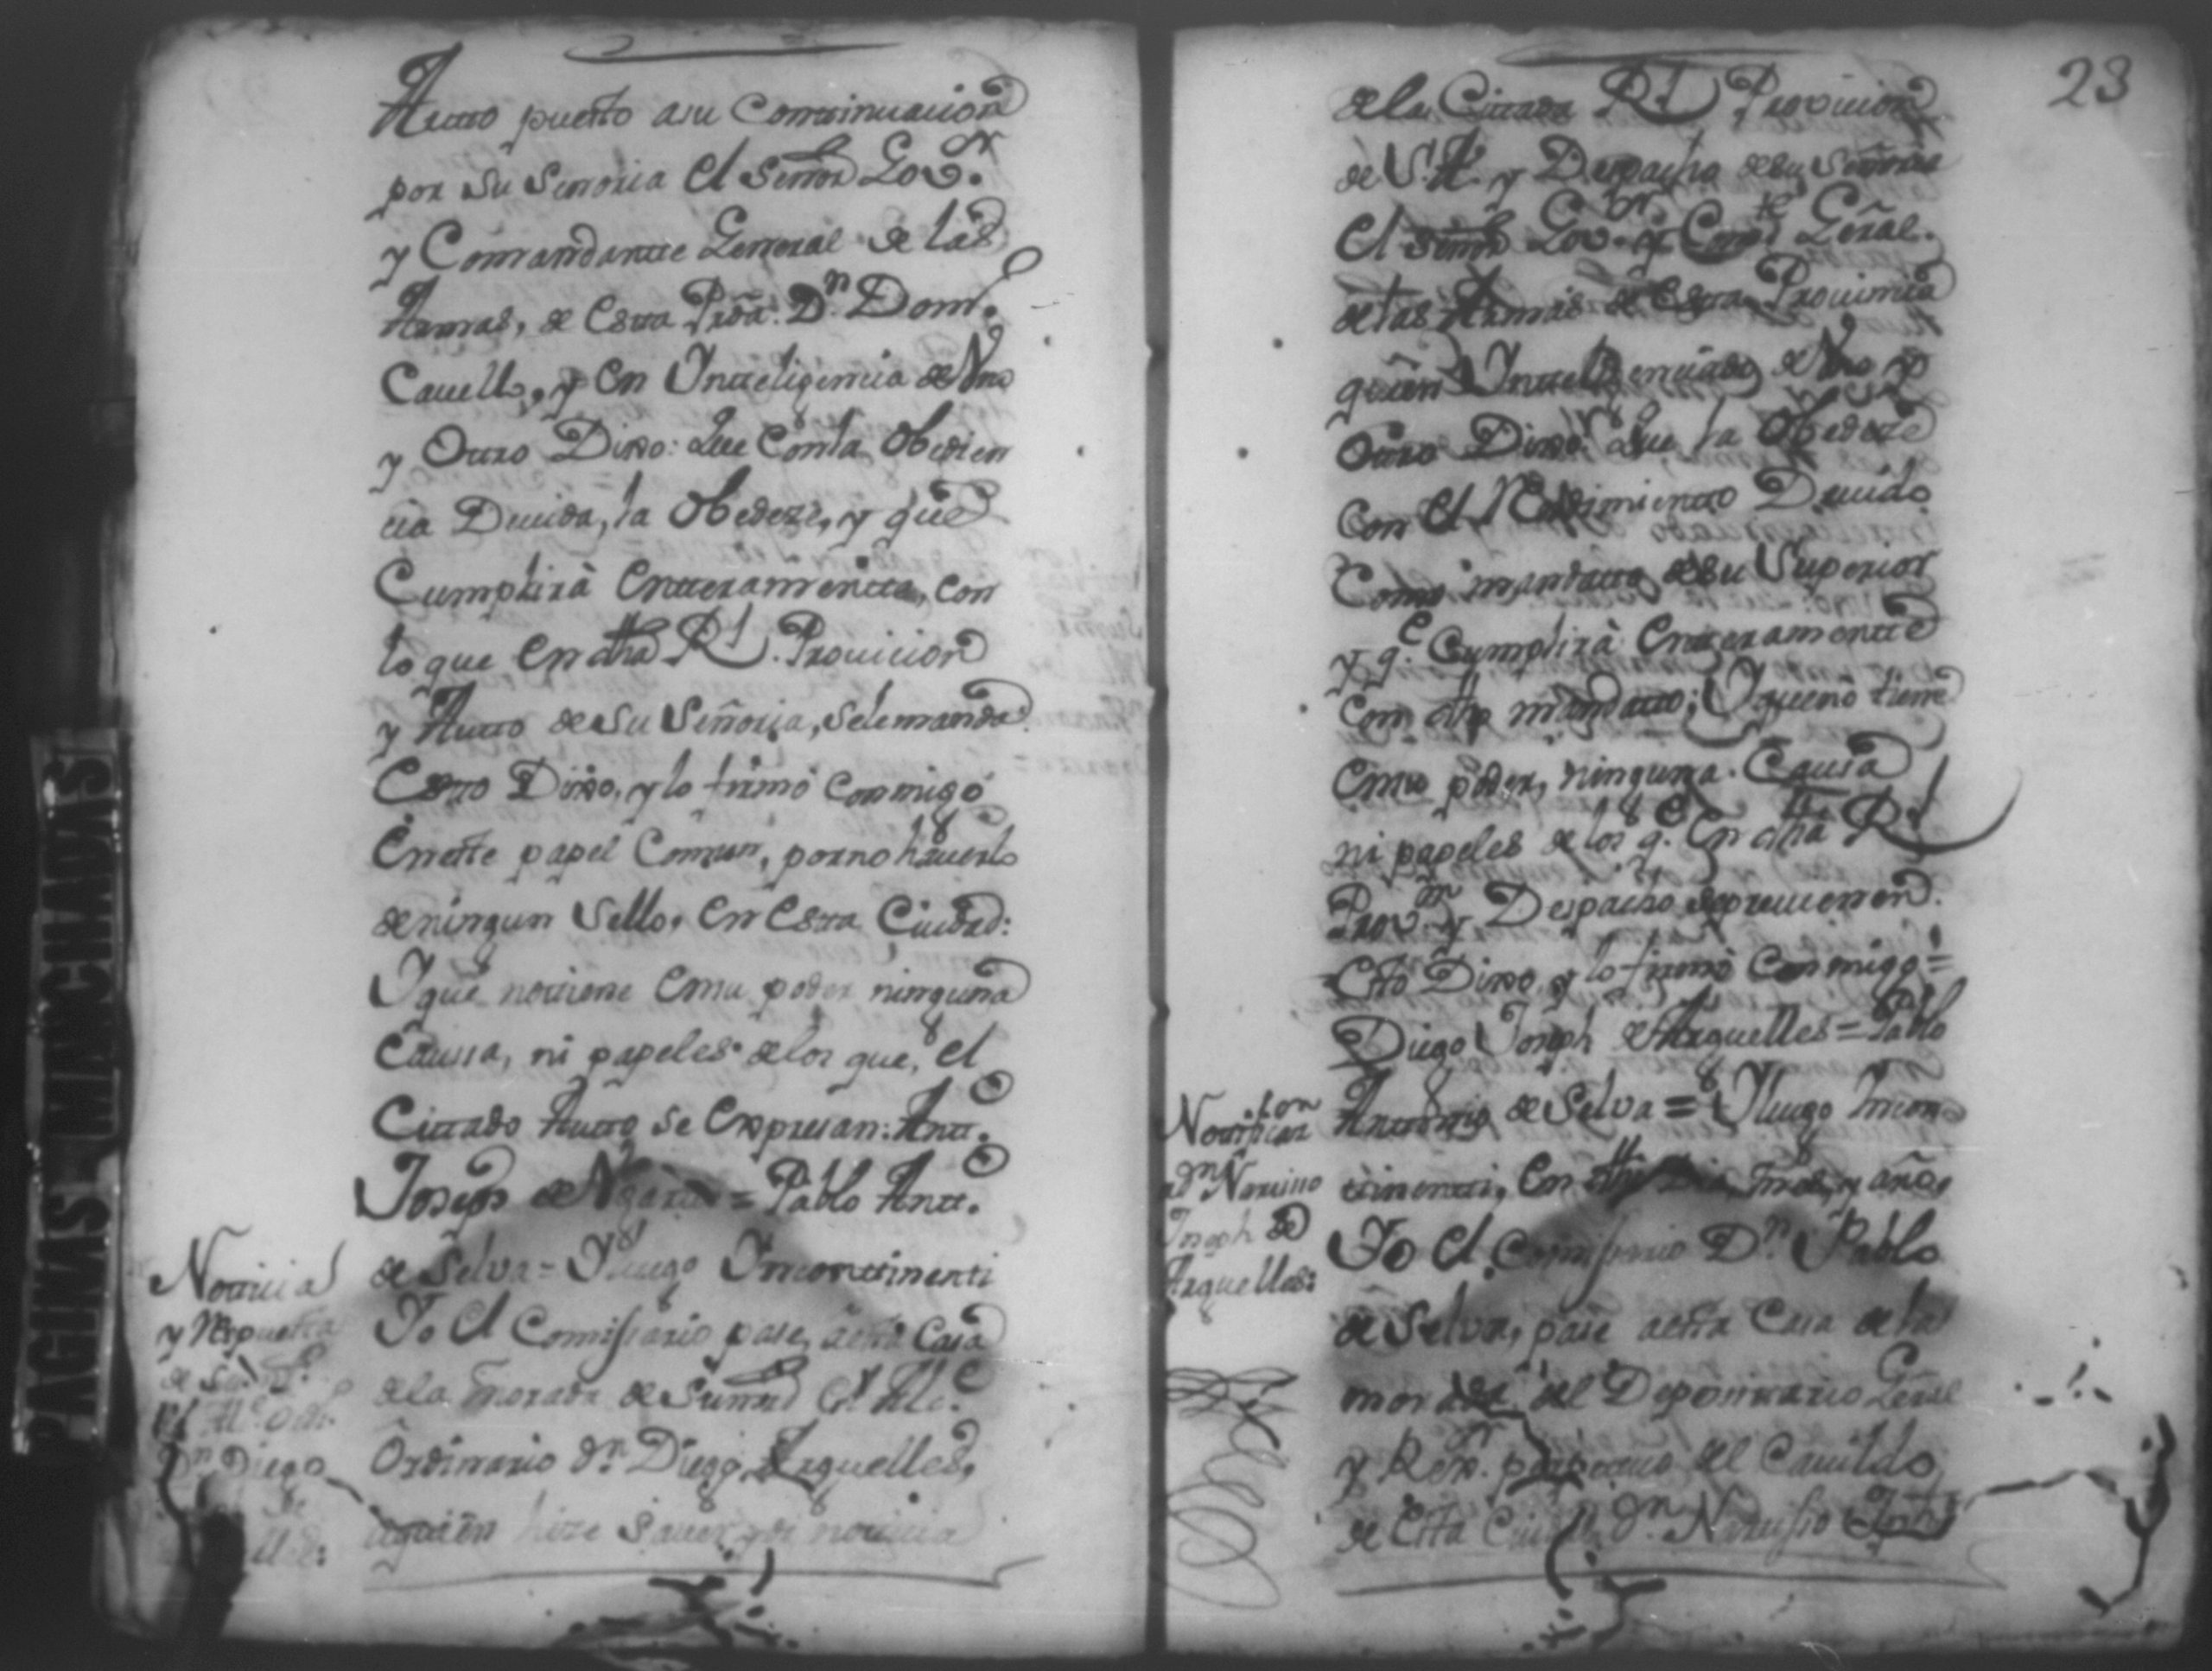 Autto puesto asu Conttinuacion
por Su Señoria El Señor Gov.or
y Comandantte General de las
Armas, de Estta Prôa. Dn. Dom.o
Cavello, y En Intteligencia de Vno
y Ottro Dixo: Que Con la Obedien
cia Devida, la Obedeze, y que
Cumplirà Entteramentte, con
lo que En dha Rl. Provicion
y Autto de Su Señoria, Selemanda
Estto Dixo, y lo firmò Conmigo
Eneste papel Comun, porno haverlo
deningun Sello, En Estta Ciudad:
Y que nottiene Ensu poder ninguna
Caussa, ni papeles delos que, el
Cittado Autto se Expresan: Antt.o
Joseph de = Pablo Antt.o
de Selva = Y luego Yncontinenti
Yo El Comissario pase, aesta Casa
dela morada de Su mrd El Alc.e
Ordinario Dn. Diego Arguelles,
aquien hize saver y di notticia
Notticia
y Respuesta
de Su
el Alc.e Ordi.
Dn. Diego
23
dela Cittada Rl Provicion
de S.A. y Despacho de su Señoria
El Señor Gov.or y Comd.te Gêral.
delas Armas de Estta Provincia
quien Inttelijenciado de Vno y
Ottro Dixo: Que la Obedeze
Con El Rendimientto Devido
Como mandatto de su Superior
y q.e Cumplirà Entteramentte
con dho mandatto; Y queno tiene
Ensu poder, ninguna Causa
ni papeles de los q.e En dha Rl
Prov.on y Despacho seprevienen.
Esto Dixo, y lo firmò Conmigo =
Diego Joseph de Arguelles = Pablo
Anttonio de Selva = Y luego Incon
tinentti, En dho Dia, mes, y año,
Yo El Comissario Dn. Pablo
de Selva, pasé aesta Casa dela
morada del Deposittario Gêral
y Rex.or perpetuo del Cavildo
de Esta Ciudad Dn. Narcisso Jph
Nottificas.on
a Dn. Narcisso
Joseph de
Arguelles:
PAGINAS MANCHADAS